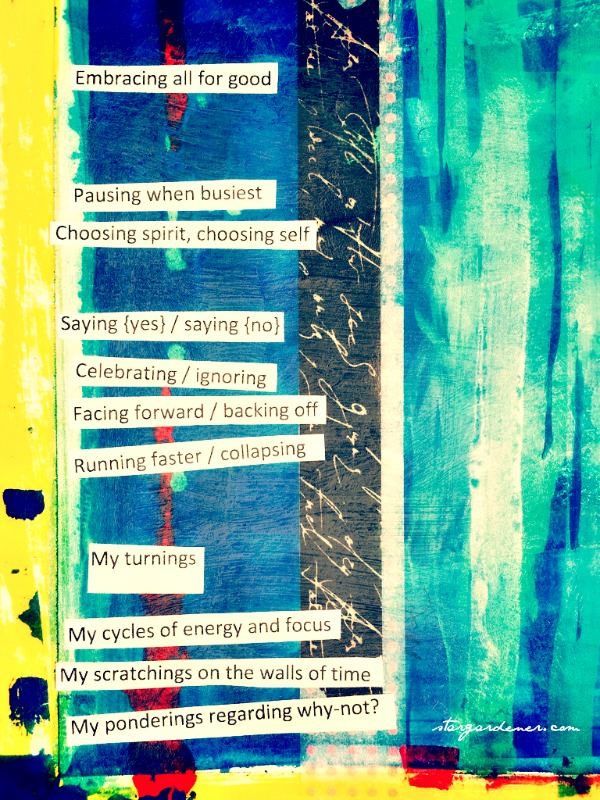 Embracing all for good
Pausing when busiest
Choosing spirit, choosing self
Saying {yes} / saying {no}
Celebrating / ignoring
Facing forward / backing off
Running faster / collapsing
My turnings
My cycles of energy and focus
My scratchings on the walls of time
My ponderings regarding why-not?
stargardener.com